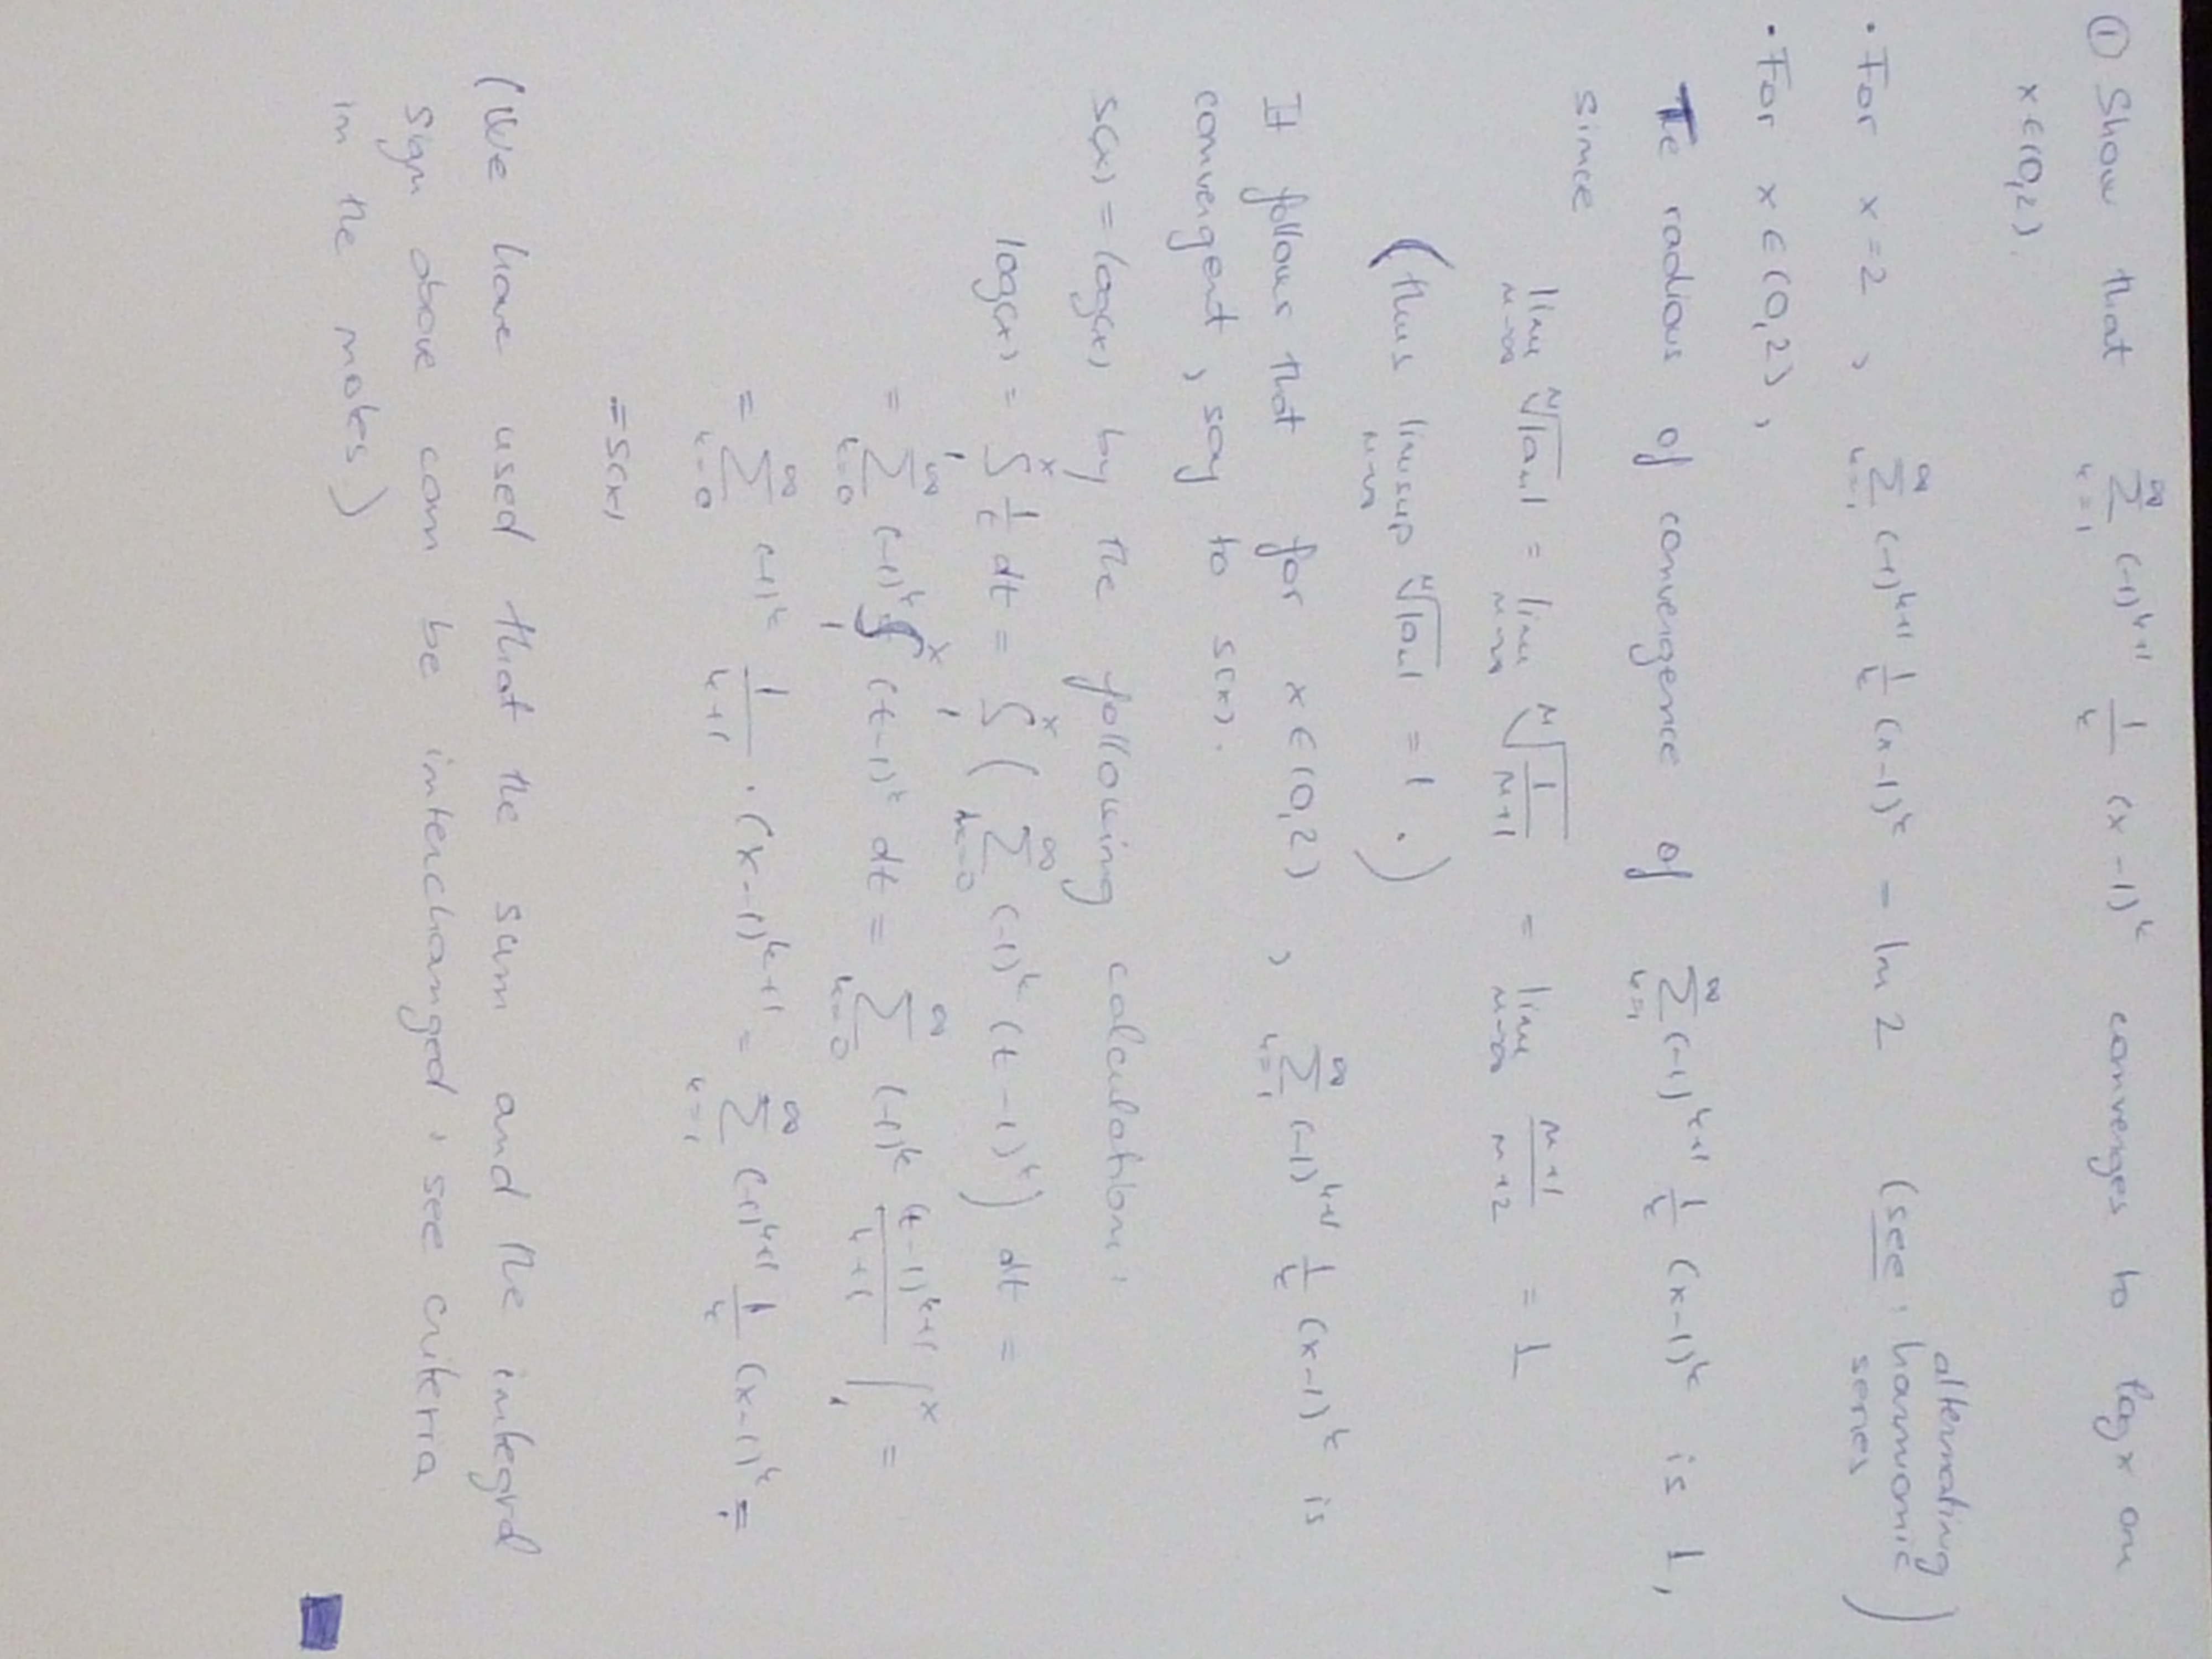 ① Show that ∑_{k=1}^{∞} (-1)^{k+1} 1/k (x-1)^k converges to log x on
x∈(0,2).
• For x=2, ∑_{k=1}^{∞} (-1)^{k+1} 1/k (x-1)^k = ln 2 (see: alternating harmonic series)
• For x∈(0,2),
The radious of convergence of ∑_{k=1}^{∞} (-1)^{k+1} 1/k (x-1)^k is 1,
since
lim_{n→∞} ⁿ√|aₙ| = lim_{n→∞} ⁿ√(1/(n+1)) = lim_{n→∞} (n+1)/(n+2) = 1
(thus limsup_{n→∞} ⁿ√|aₙ| = 1.)
It follows that for x∈(0,2), ∑_{k=1}^{∞} (-1)^{k+1} 1/k (x-1)^k is
convergent, say to s(x).
s(x) = log(x) by the following calculation:
log(x) = ∫_1^x 1/t dt = ∫_1^x (∑_{k=0}^{∞} (-1)^k (t-1)^k) dt =
= ∑_{k=0}^{∞} (-1)^k ∫_1^x (t-1)^k dt = ∑_{k=0}^{∞} (-1)^k (t-1)^{k+1}/(k+1) |_1^x =
= ∑_{k=0}^{∞} (-1)^k 1/(k+1) · (x-1)^{k+1} = ∑_{k=1}^{∞} (-1)^{k+1} 1/k (x-1)^k =
= s(x)
(We have used that the sum and the integral
sign above can be interchanged, see criteria
in the notes)